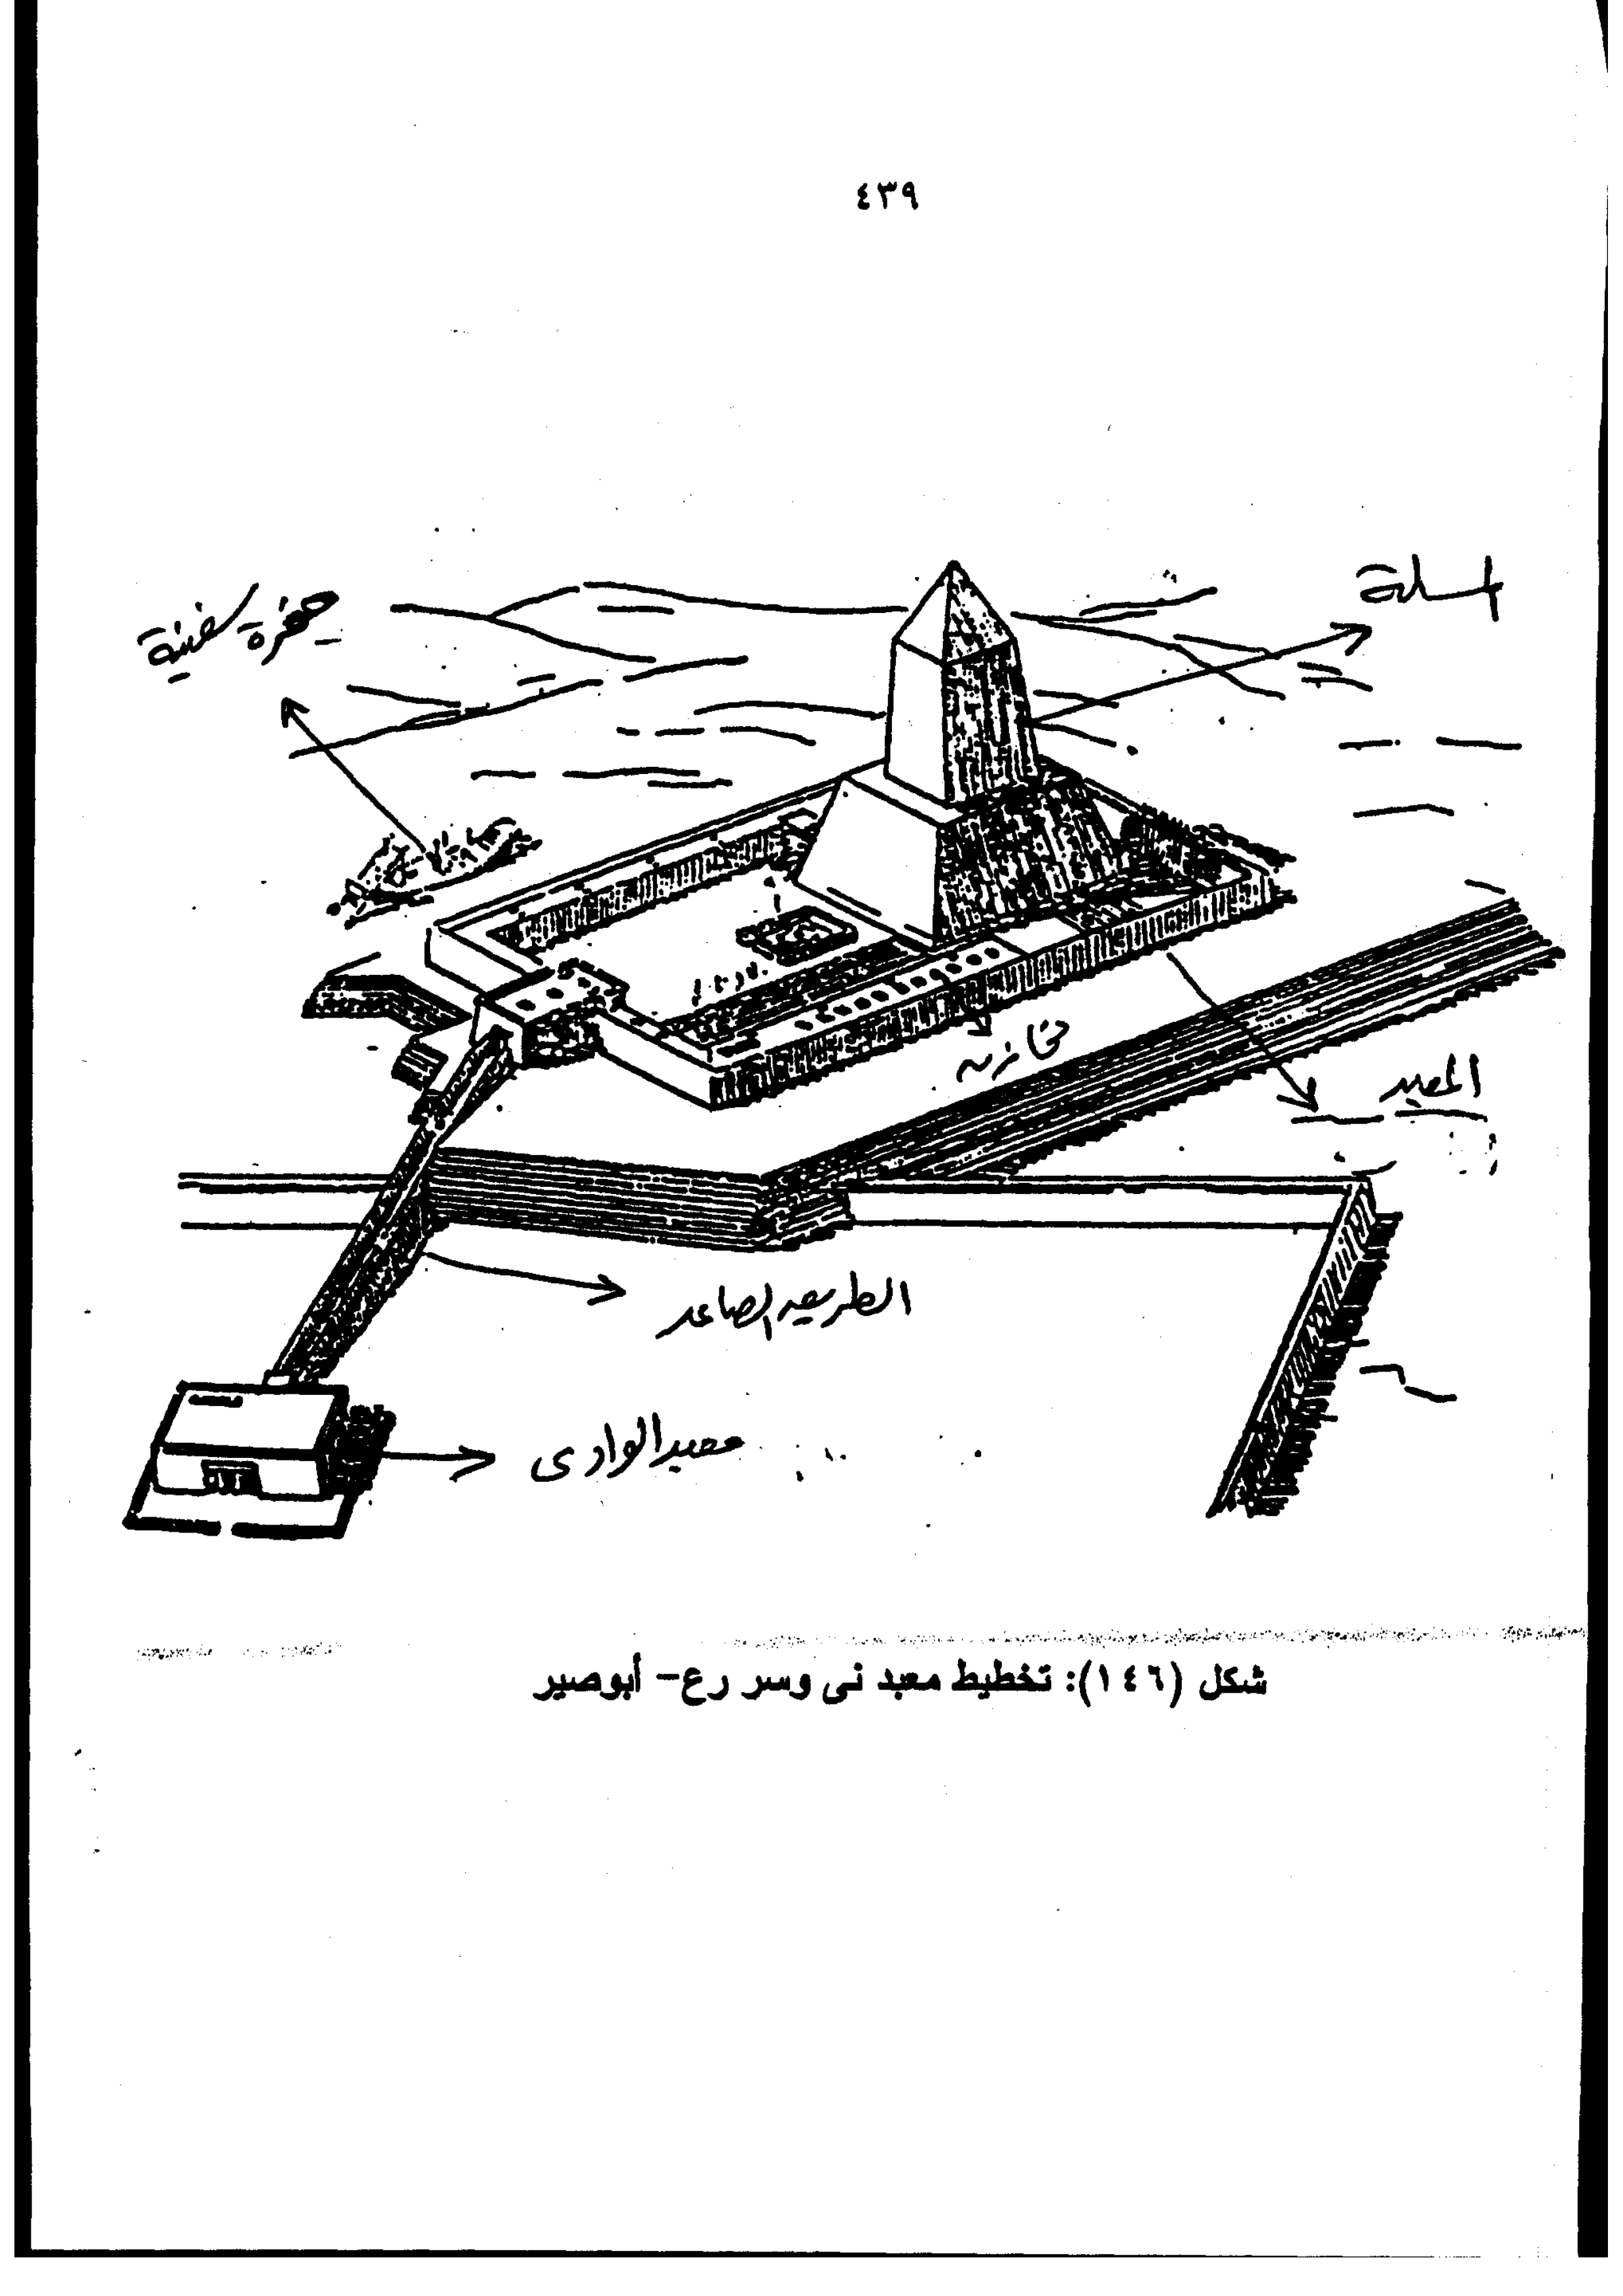 ٤٣٩
المسلة
حفرة سفينة
مخازن
المعبد
الطريق الصاعد
معبد الوادى
شكل (١٤٦): تخطيط معبد نى وسر رع- أبوصير